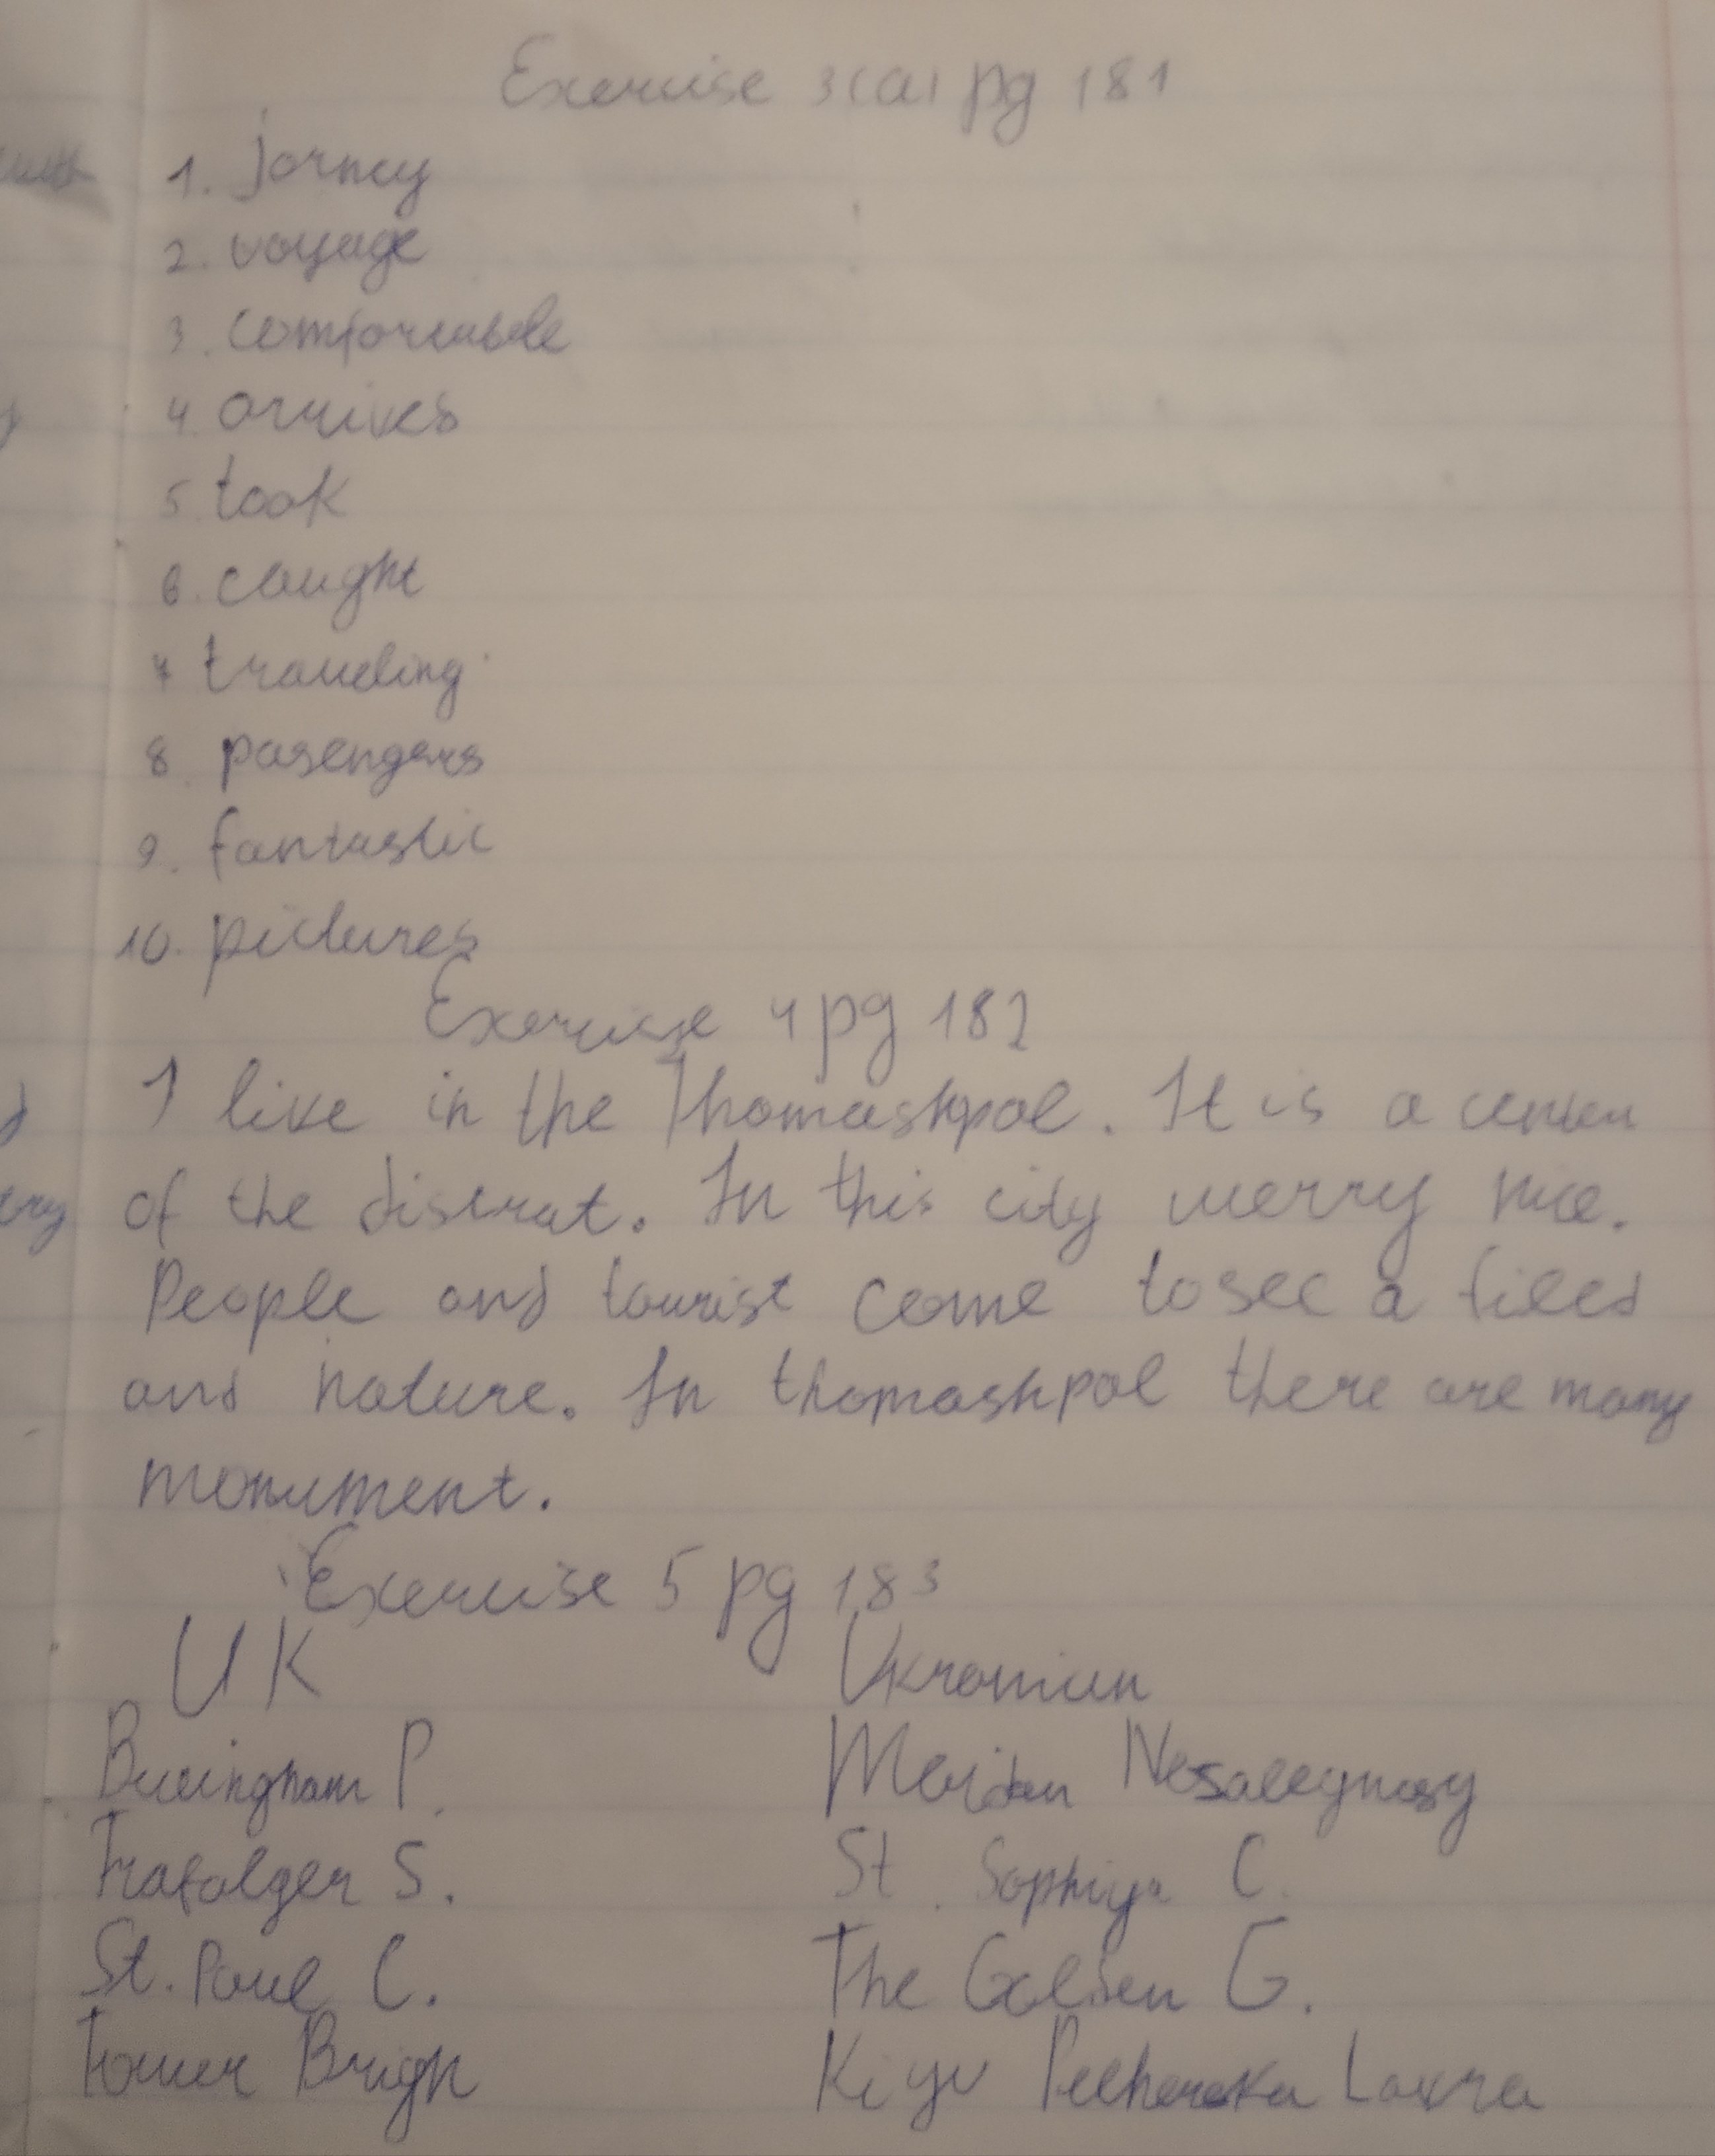 Exercise 3(a) pg 181
1. jorney
2. voyage
3. comfortable
4. arrives
5. took
6. caught
7 traveling
8. pasengers
9. fantastic
10. pictures
Exercise 4 pg 182
I live in the Thomashpol. It is a center
of the district. In this city werry nice.
People and tourist come to see a filed
and nature. In thomashpol there are many
monument.
Exercise 5 pg 183
UK Ukranian
Bucingham P. Meidan Nesalegnosy
Trafalger S. St. Sophiya C.
St. Paul C. The Golden G.
Tower Brigh Kiyv Pecherska Lavra